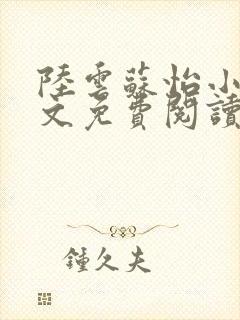 陸雲蘇怡小
文免費閱讀
鍾久夫